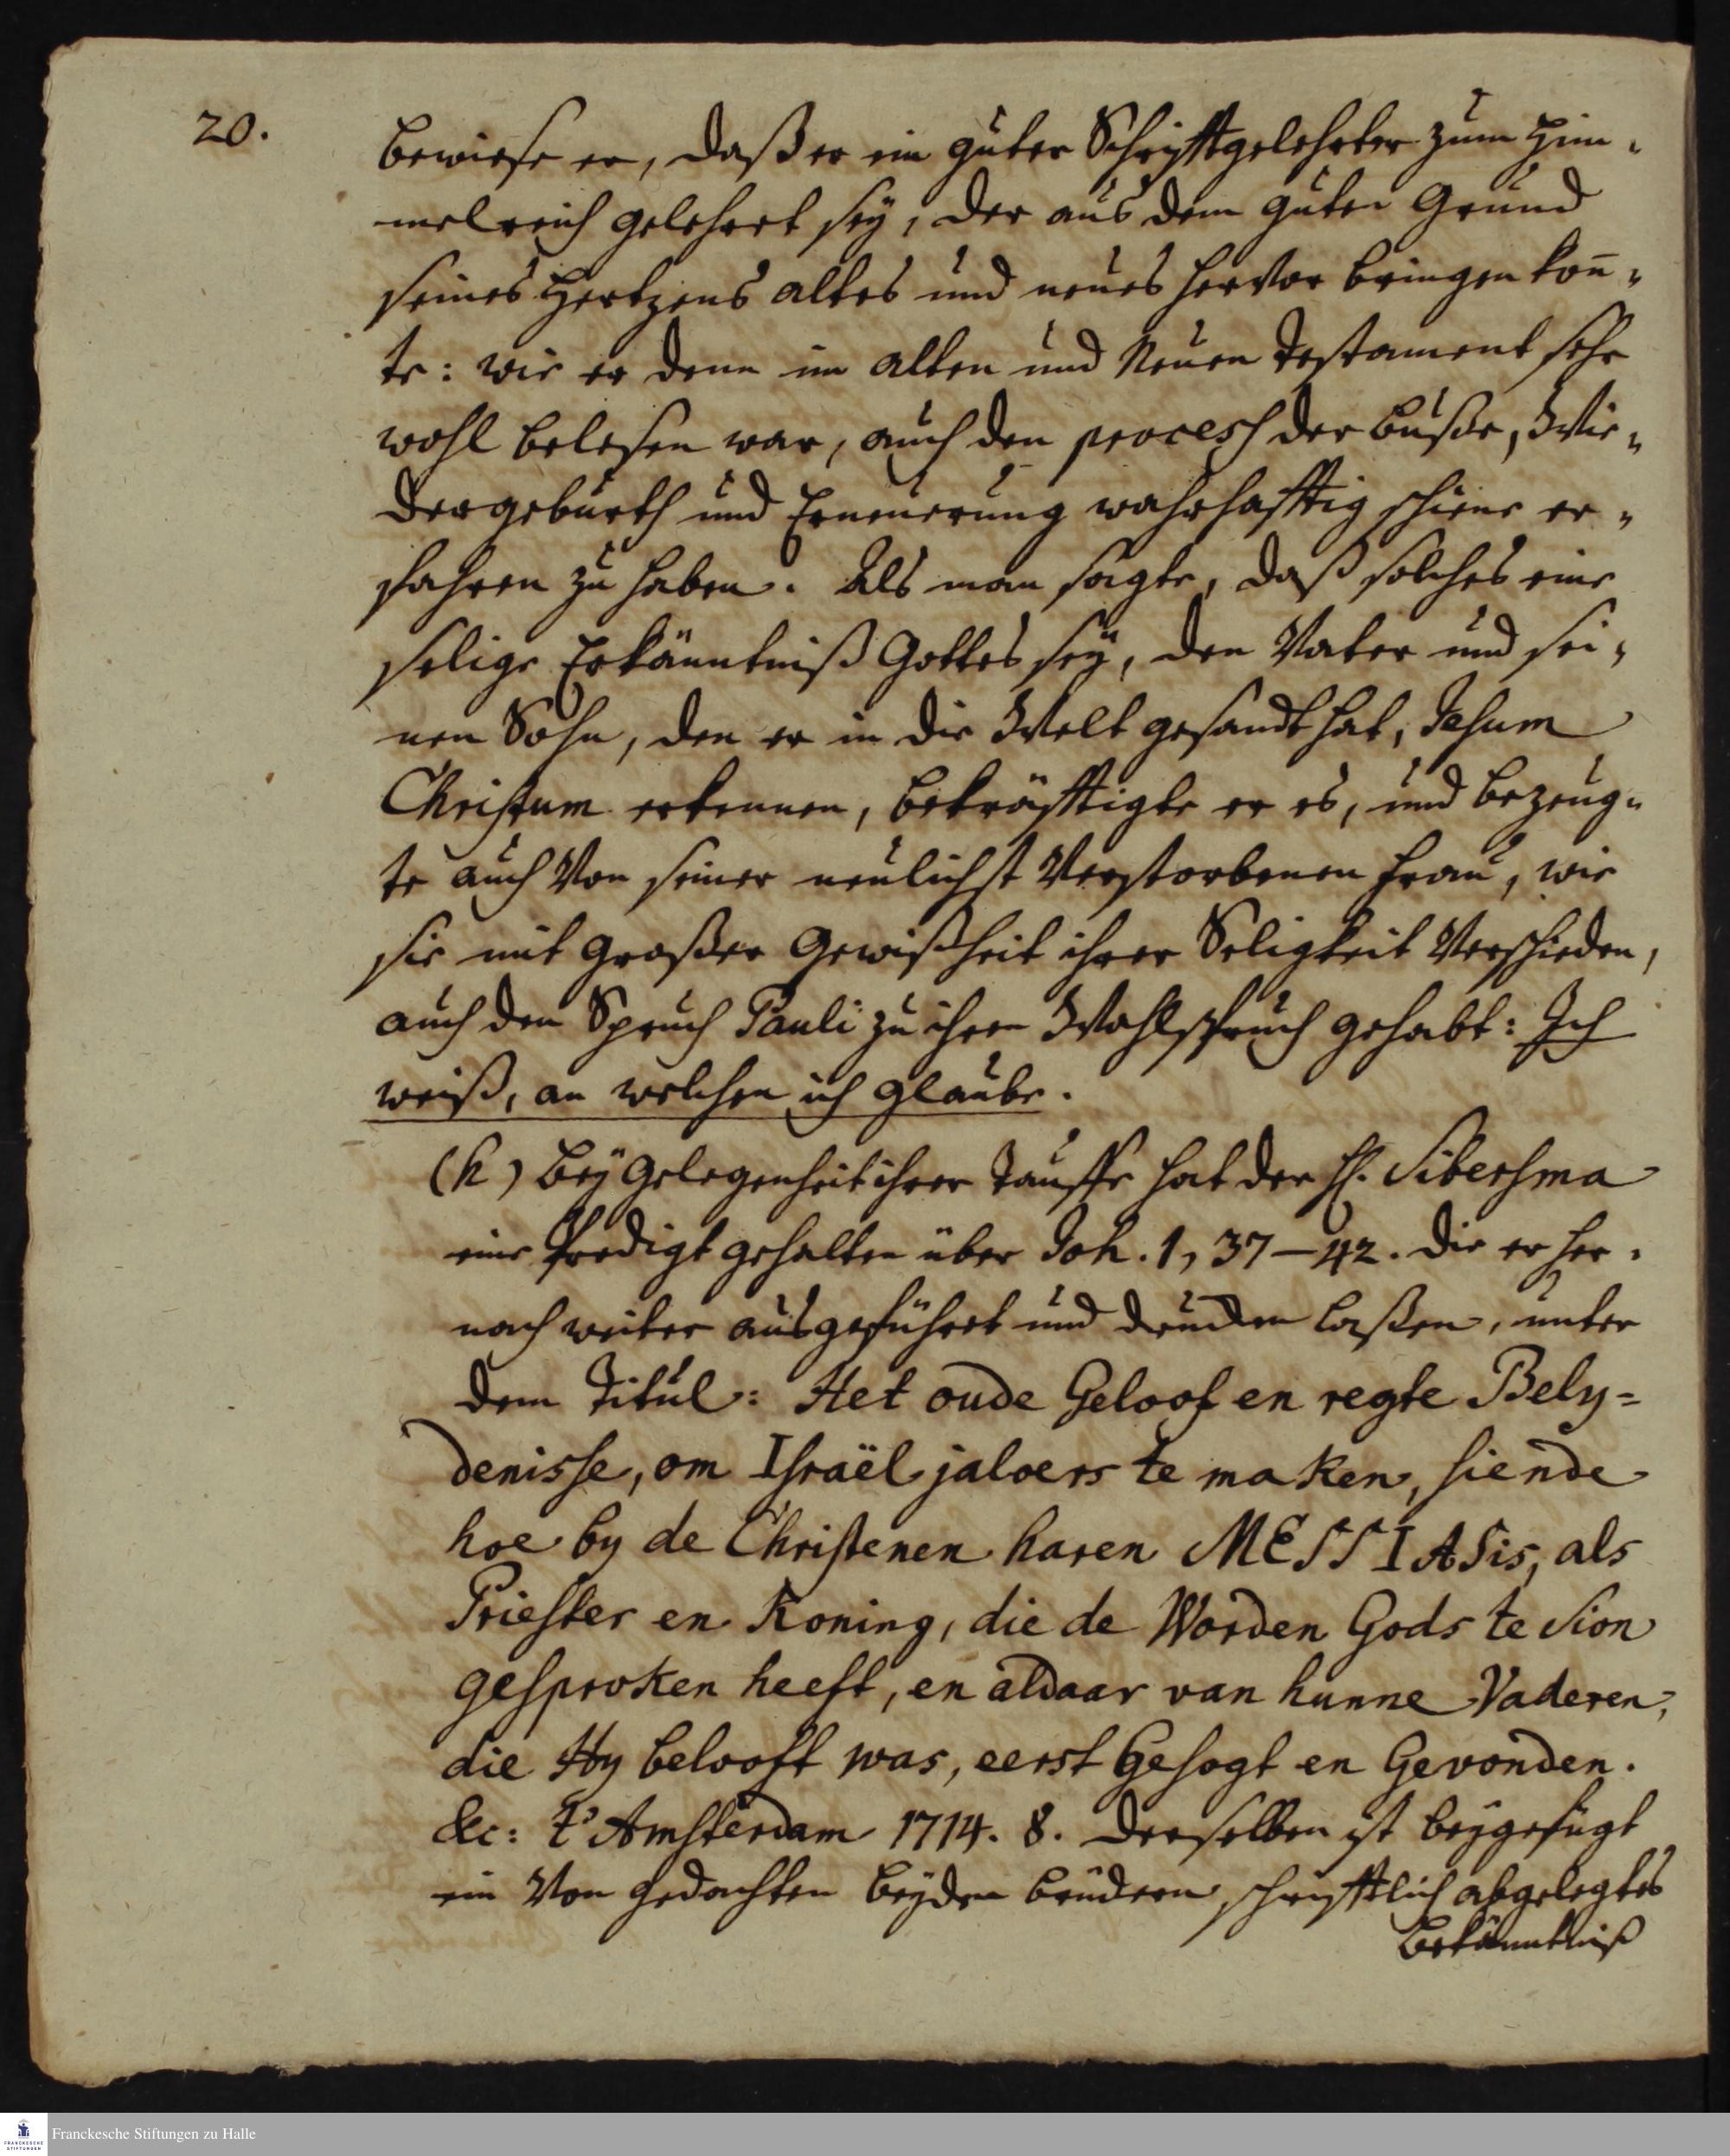 20.
bewiese er, daß er ein guter Schrifftgelehrter zum Him-
melreich gelehrt sey, der aus dem guten Grund
seines Hertzens altes und neues hervor bringen kon̄-
te: wie er denn im alten und Neuen Testament sehr
wohl belesen war, auch den process der Buße, Wie-
dergeburth und Erneuerung wahrhafftig schiene er-
fahren zu haben. Als man sagte, daß solches eine
selige Erkänntniß Gottes sey, den Vater und sei-
nen Sohn, den er in die Welt gesandt hat, Jesum
Christum erkennen, bekräfftigte er es, und bezeug-
te auch von seiner neulichst verstorbenen Frau, wie
sie mit großer Gewißheit ihrer Seligkeit verschieden,
auch den Spruch Pauli zu ihren Wahlspruch gehabt: Ich
weiß, an welchen ich glaube.
(h) Bey Gelegenheit ihrer Tauffe hat der H. Sibersma
eine Predigt gehalten über Joh. 1, 37–42. die er her-
nach weiter ausgeführt und drucken laßen, unter
dem Titul: Het oude Geloof en regte Bely=
denisse, om Israël jaloers te maken, siende
hoe by de Christenen haren MESSIAS is, als
Priester en Koning, die de Worden Gods te Sion
gesproken heeft, en aldaar van hunne Vaderen,
die Hy belooft was, eerst Gesogt en Gevonden.
&c: t' Amsterdam 1714. 8. Derselben ist beygefügt
ein von gedachten beyden Brüdern schrifftlich abgelegtes
Bekänntniß
Franckesche Stiftungen zu Halle
FRANCKESCHE
STIFTUNGEN